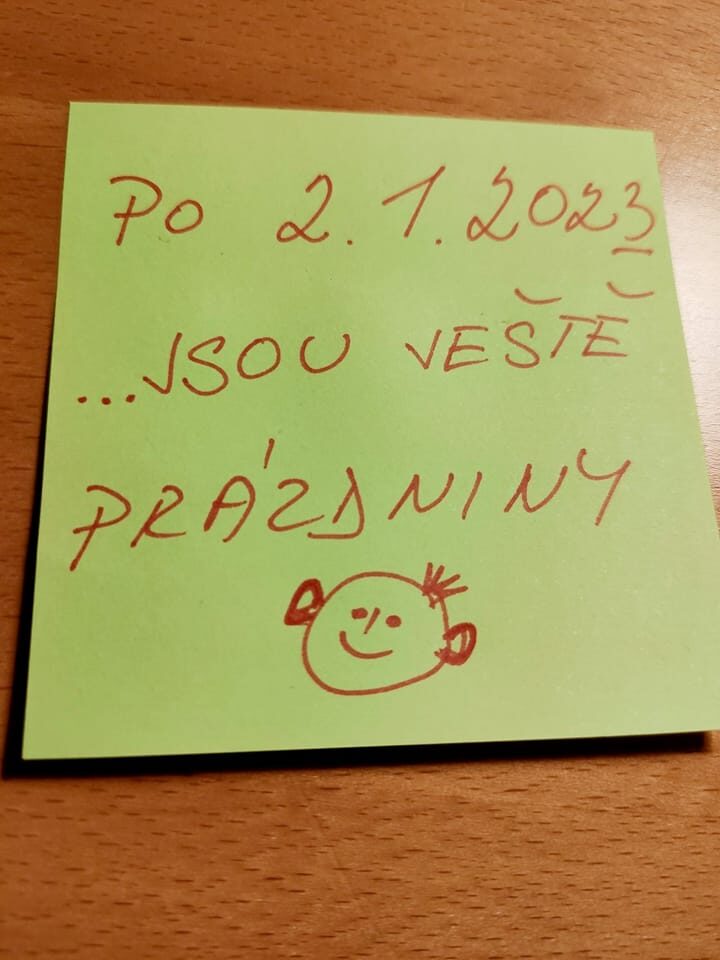 PO 2.1.2023
...JSOU JEŠTĚ
PRÁZDNINY